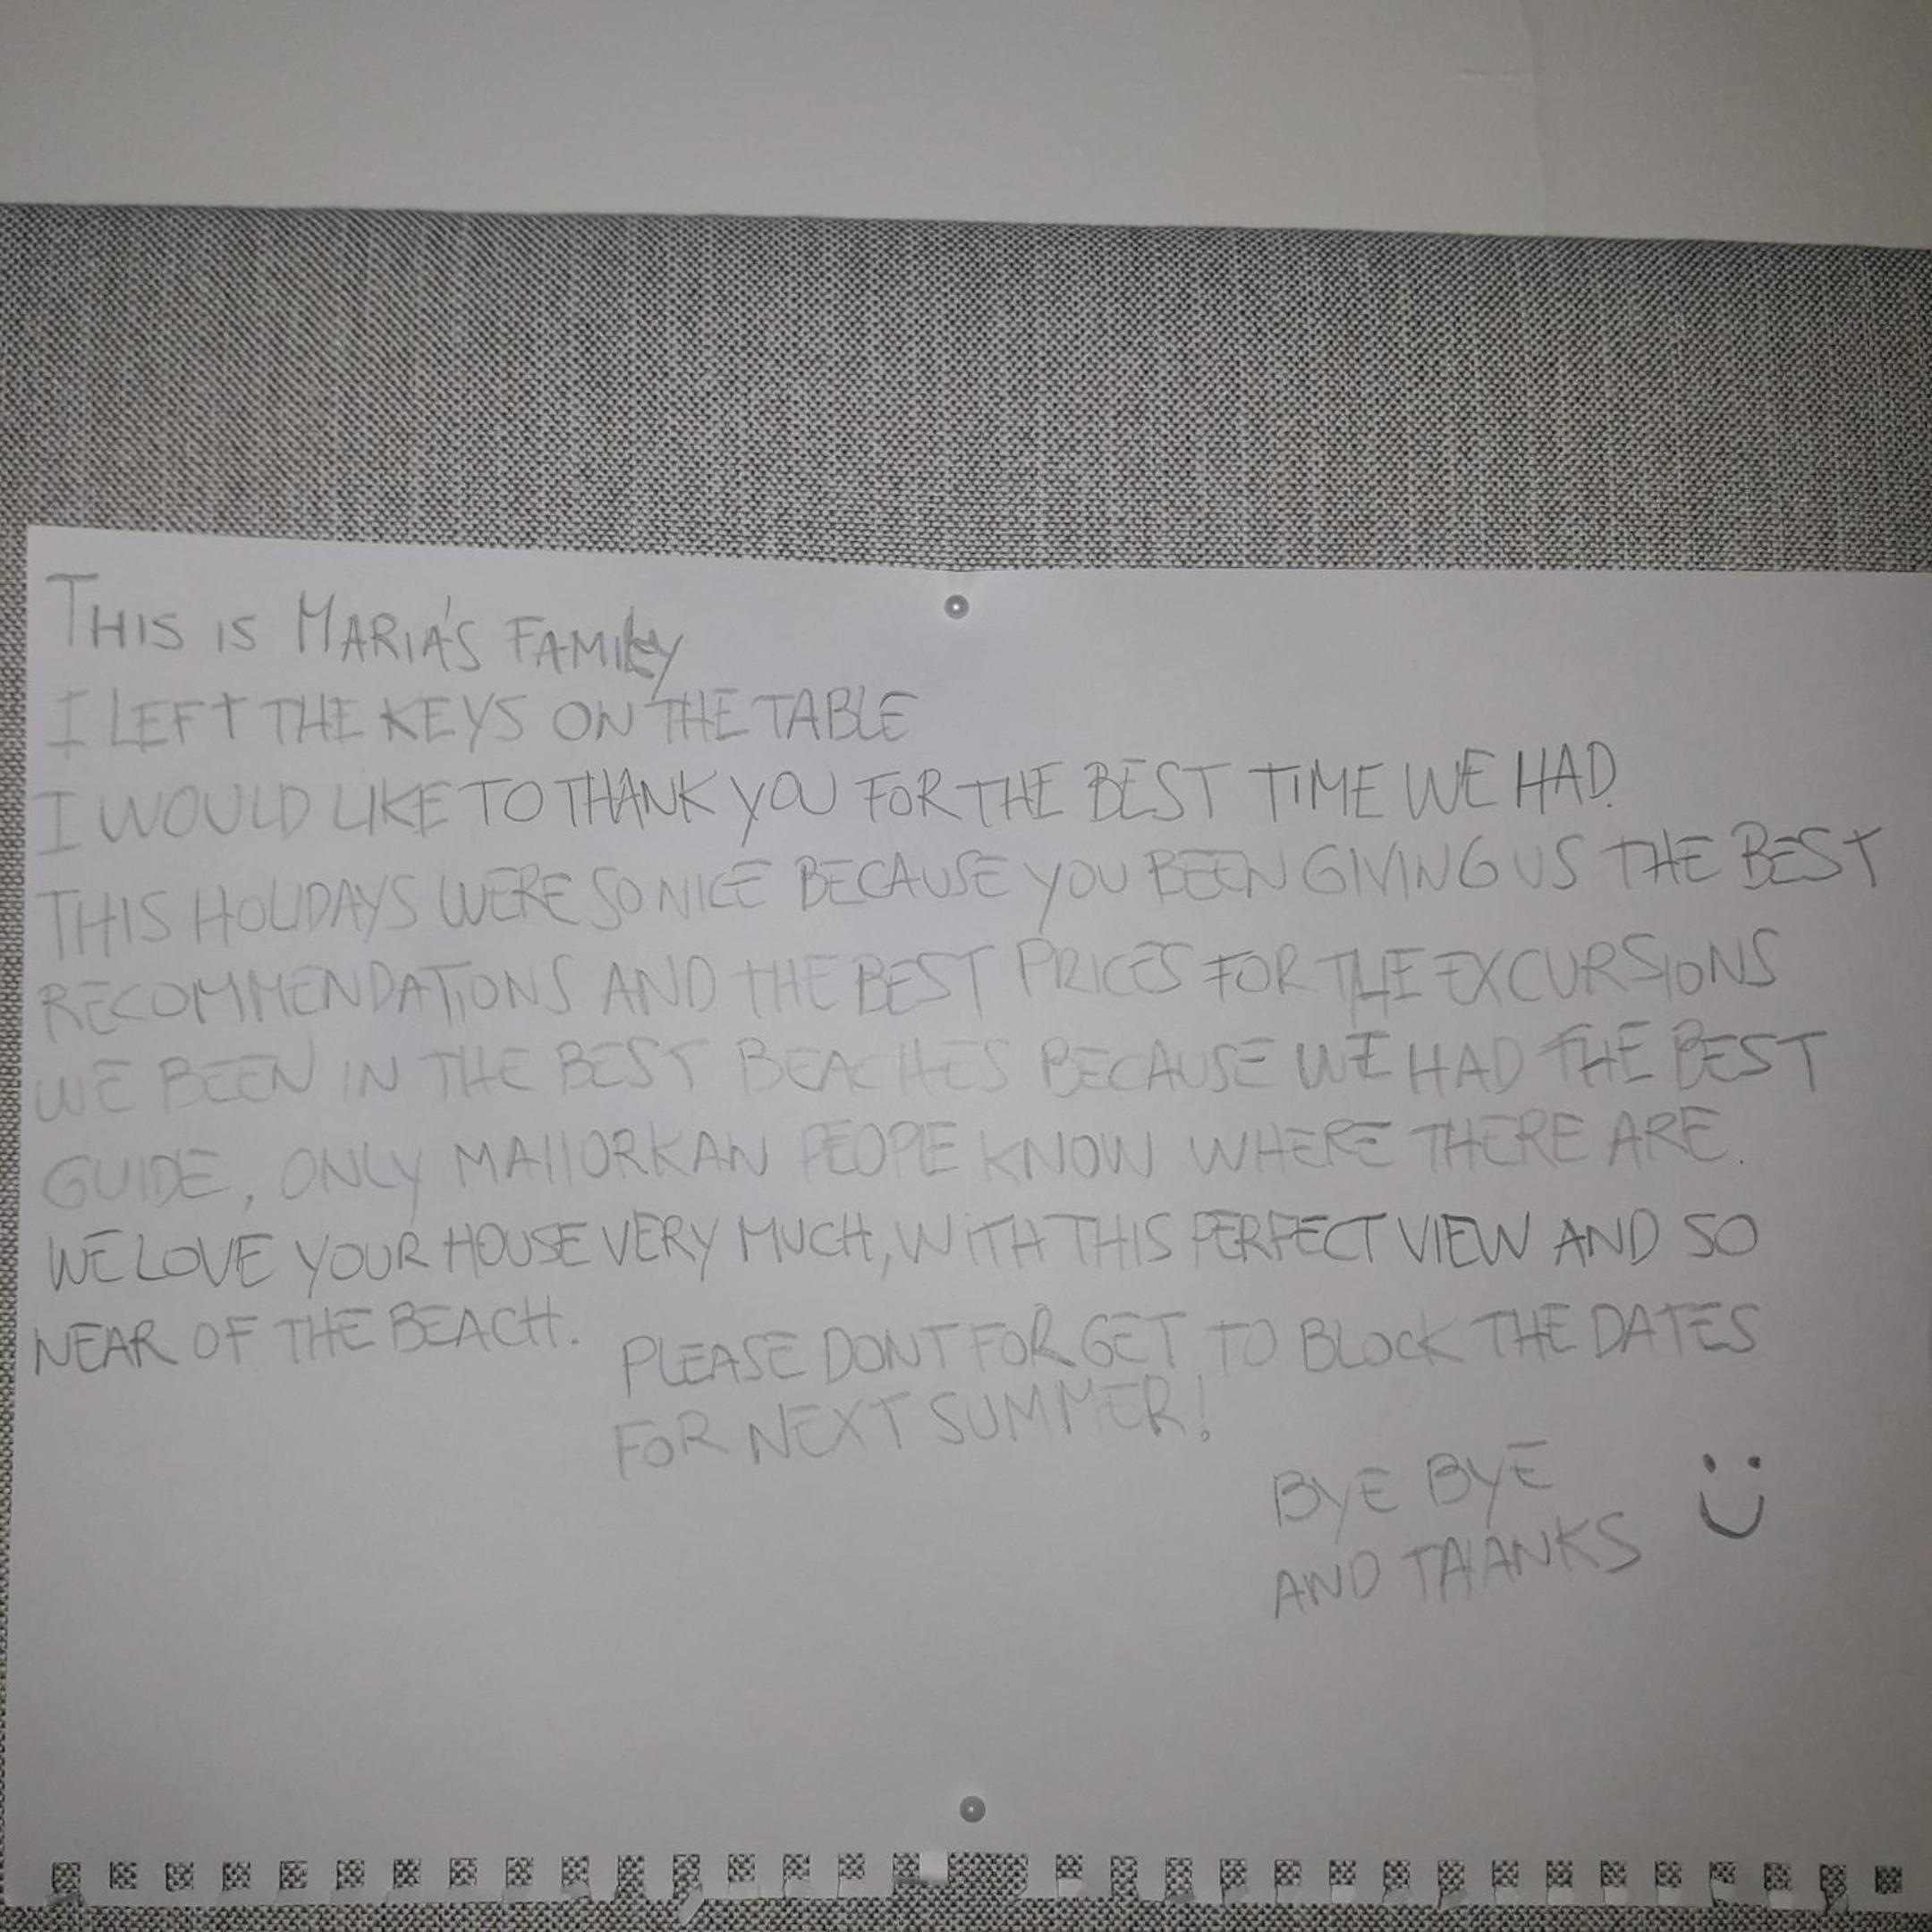 THIS IS MARIA'S FAMILY
I LEFT THE KEYS ON THE TABLE
I WOULD LIKE TO THANK YOU FOR THE BEST TIME WE HAD.
THIS HOLIDAYS WERE SO NICE BECAUSE YOU BEEN GIVING US THE BEST
RECOMMENDATIONS AND THE BEST PRICES FOR THE EXCURSIONS
WE BEEN IN THE BEST BEACHES BECAUSE WE HAD THE BEST
GUIDE, ONLY MALLORKAN PEOPLE KNOW WHERE THERE ARE.
WE LOVE YOUR HOUSE VERY MUCH, WITH THIS PERFECT VIEW AND SO
NEAR OF THE BEACH.
PLEASE DONT FORGET TO BLOCK THE DATES
FOR NEXT SUMMER!
BYE BYE
AND THANKS